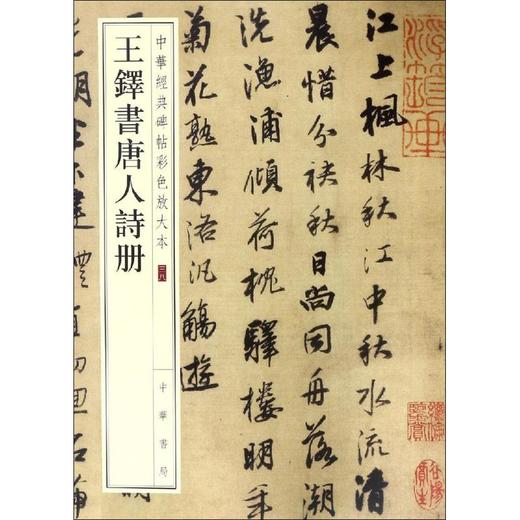 江上楓林秋江中秋水流清
晨惜分袂秋日尚同舟落潮
洗漁浦傾荷枕驛樓明年
菊花熟東洛汎觴遊
中華經典碑帖彩色放大本 三八
王鐸書唐人詩册
中華書局